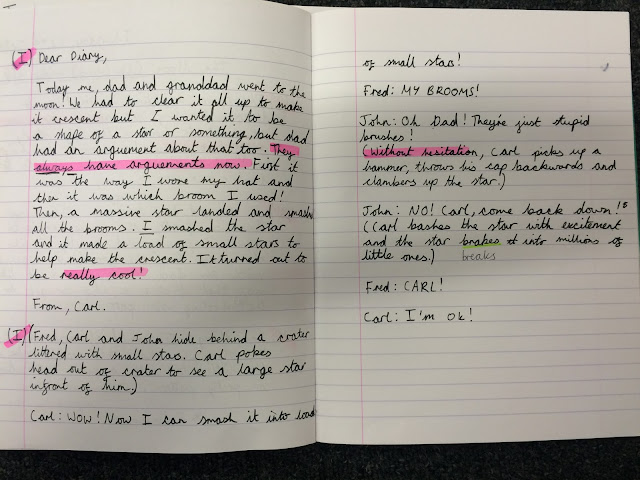 (I) Dear Diary,
Today me, dad and granddad went to the
moon! We had to clear it all up to make
it crescent but I wanted it to be
a shape of a star or something, but dad
had an arguement about that too. They
always have arguements now. First it
was the way I wore my hat and
then it was which broom I used!
Then, a massive star landed and smash
all the brooms. I smashed the star
and it made a load of small stars to
help make the crescent. It turned out to
be really cool!
From, Carl.
(I) (Fred, Carl and John hide behind a crater
littered with small stars. Carl pokes
head out of crater to see a large star
infront of him.)
Carl: WOW! Now I can smash it into load
of small stars!
Fred: MY BROOMS!
John: Oh Dad! They're just stupid
brushes!
(Without hesitation, Carl picks up a
hammer, throws his cap backwards and
clambers up the star.)
John: NO! Carl, come back down!
(Carl bashes the star with excitement
and the star brakes into millions of
little ones.) breaks
Fred: CARL!
Carl: I'm ok!